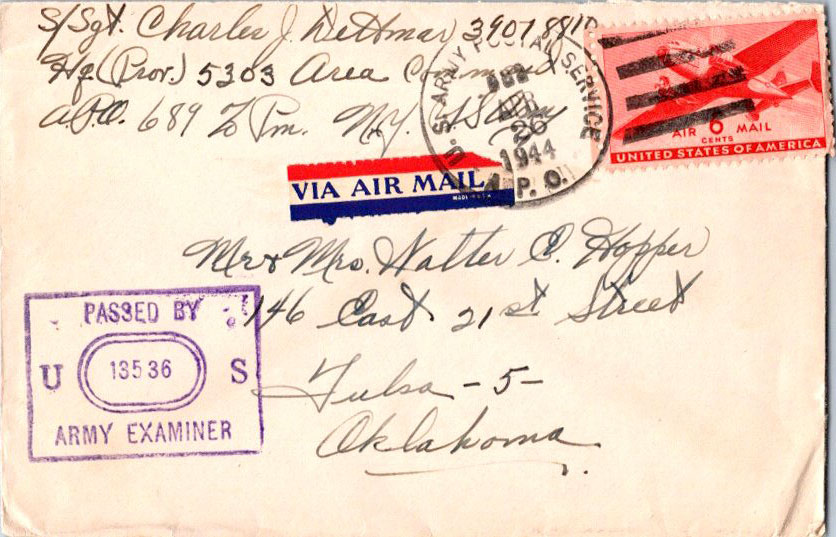 S/Sgt. Charles J. Dettmar 39018810
Hq (Prov.) 5303 Area Command
A.P.O. 689 % Pm. N.Y.
U.S. ARMY POSTAL SERVICE
APR
26
1944
A.P.O.
AIR 6 MAIL
CENTS
UNITED STATES OF AMERICA
VIA AIR MAIL
Mr & Mrs. Walter C. Hopper
146 East 21st Street
Tulsa - 5 -
Oklahoma.
PASSED BY
U 13536 S
ARMY EXAMINER